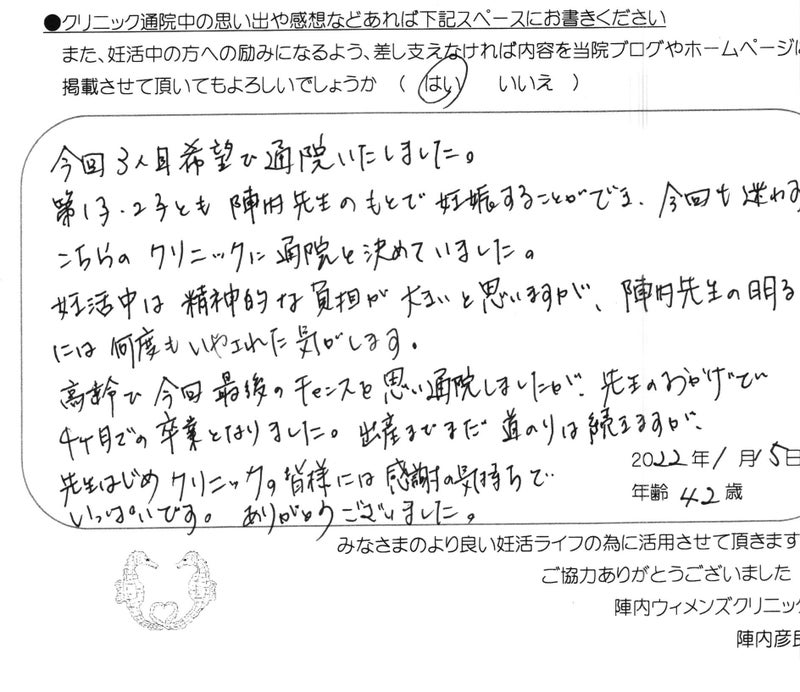 ●クリニック通院中の思い出や感想などあれば下記スペースにお書きください
また、妊活中の方への励みになるよう、差し支えなければ内容を当院ブログやホームページに
掲載させて頂いてもよろしいでしょうか （ はい いいえ ）
今回3人目希望で通院いたしました。
第1子・2子とも 陣内先生のもとで 妊娠することができ、今回も迷わず
こちらの クリニックに 通院と決めていました。
妊活中は 精神的な負担が 大きいと思いますが、陣内先生の明る
には 何度も いやされた 気がします。
高齢で 今回 最後のチャンスと思い通院しましたが、先生のおかげで
4ヶ月での 卒業となりました。出産までまだ 道のりは続きますが、
先生はじめ クリニックの皆様には 感謝の気持ちで
いっぱいです。 ありがとうございました。
2022年1月15日
年齢 42歳
みなさまのより良い妊活ライフの為に活用させて頂きます
ご協力ありがとうございました
陣内ウィメンズクリニック
陣内彦良